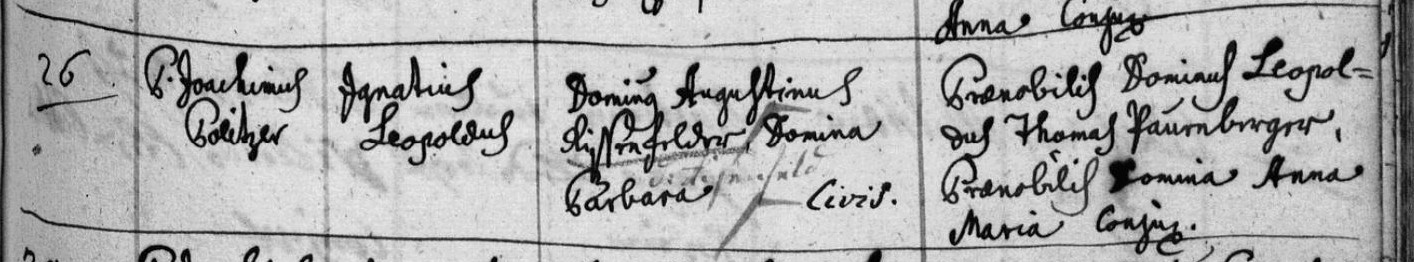 Anna Conjux
26
P. Joachimus
Politzer
Ignatius
Leopoldus
Dominus Augustinus
Domina
Barbara Civis.
Prænobilis Dominus Leopol=
dus Thomas Paurnberger,
Prænobilis Domina Anna
Maria Conjux.